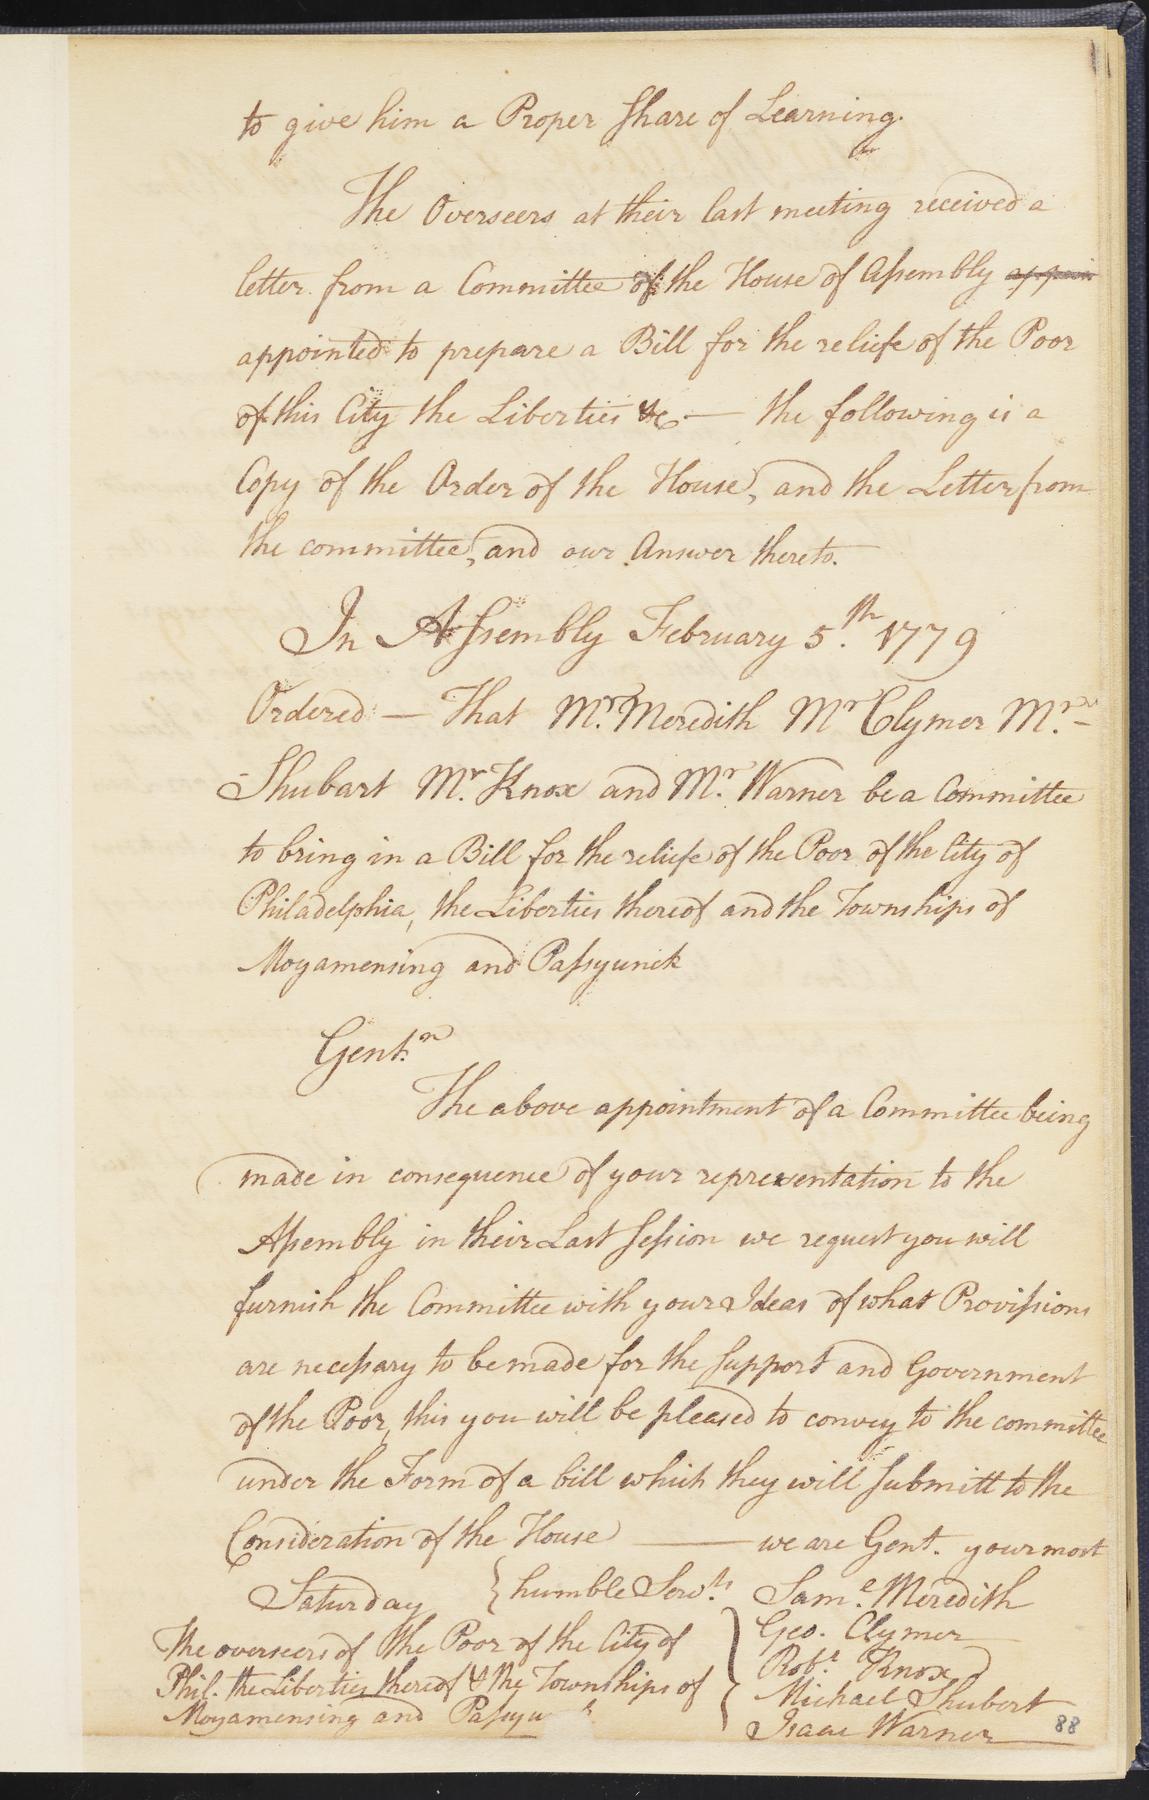 to give him a Proper Share of Learning.
The Overseers at their last meeting received a
letter from a Committee of the House of Assembly appoin
appointed to prepare a Bill for the reliefe of the Poor
of this City the Liberties &c. — the following is a
Copy of the Order of the House, and the Letter from
the committee, and our Answer thereto.
In Assembly February 5.th 1779
Ordered — That Mr. Meredith Mr Clymer Mr.
Shubart Mr. Knox and Mr. Warner be a Committee
to bring in a Bill for the reliefe of the Poor of the City of
Philadelphia, the Liberties thereof and the Townships of
Moyamensing and Passyunck
Gent.n
The above appointment of a Committee being
made in consequence of your representation to the
Assembly in their Last Session we request you will
furnish the Committee with your Ideas of what Provissions
are necessary to be made for the Support and Government
of the Poor, this you will be pleased to convey to the committee
under the Form of a bill which they will Submitt to the
Consideration of the House —— we are Gent. your most
Saturday { humble Serv.ts Sam.l Meredith
The overseers of the Poor of the City of } Geo. Clymer
Phil. the Liberties thereof & the Townships of Rob.t Knox
Moyamensing and Passyu k Michael Shubert
Isaac Warner 88